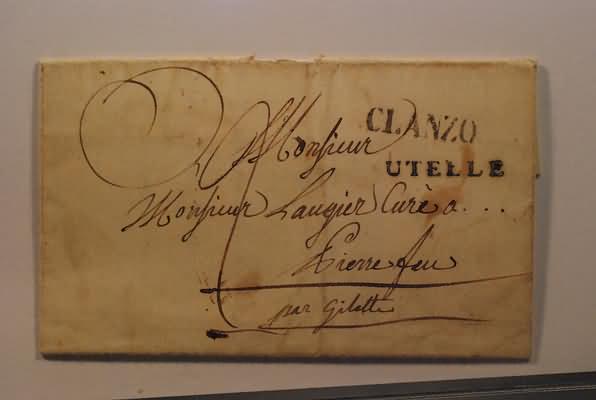 CLANZO
UTELLE
Monsieur
Monsieur Laugier Curé a...
Pierrefeu
par Gilette